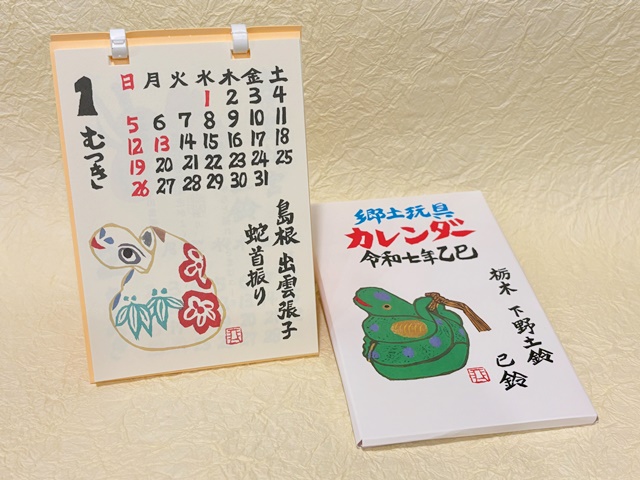 1
むつき
日 月 火 水 木 金 土
1 2 3 4
5 6 7 8 9 10 11
12 13 14 15 16 17 18
19 20 21 22 23 24 25
26 27 28 29 30 31
島根 出雲張子
蛇首振り
郷土玩具
カレンダー
令和七年乙巳
栃木 下野土鈴
巳鈴